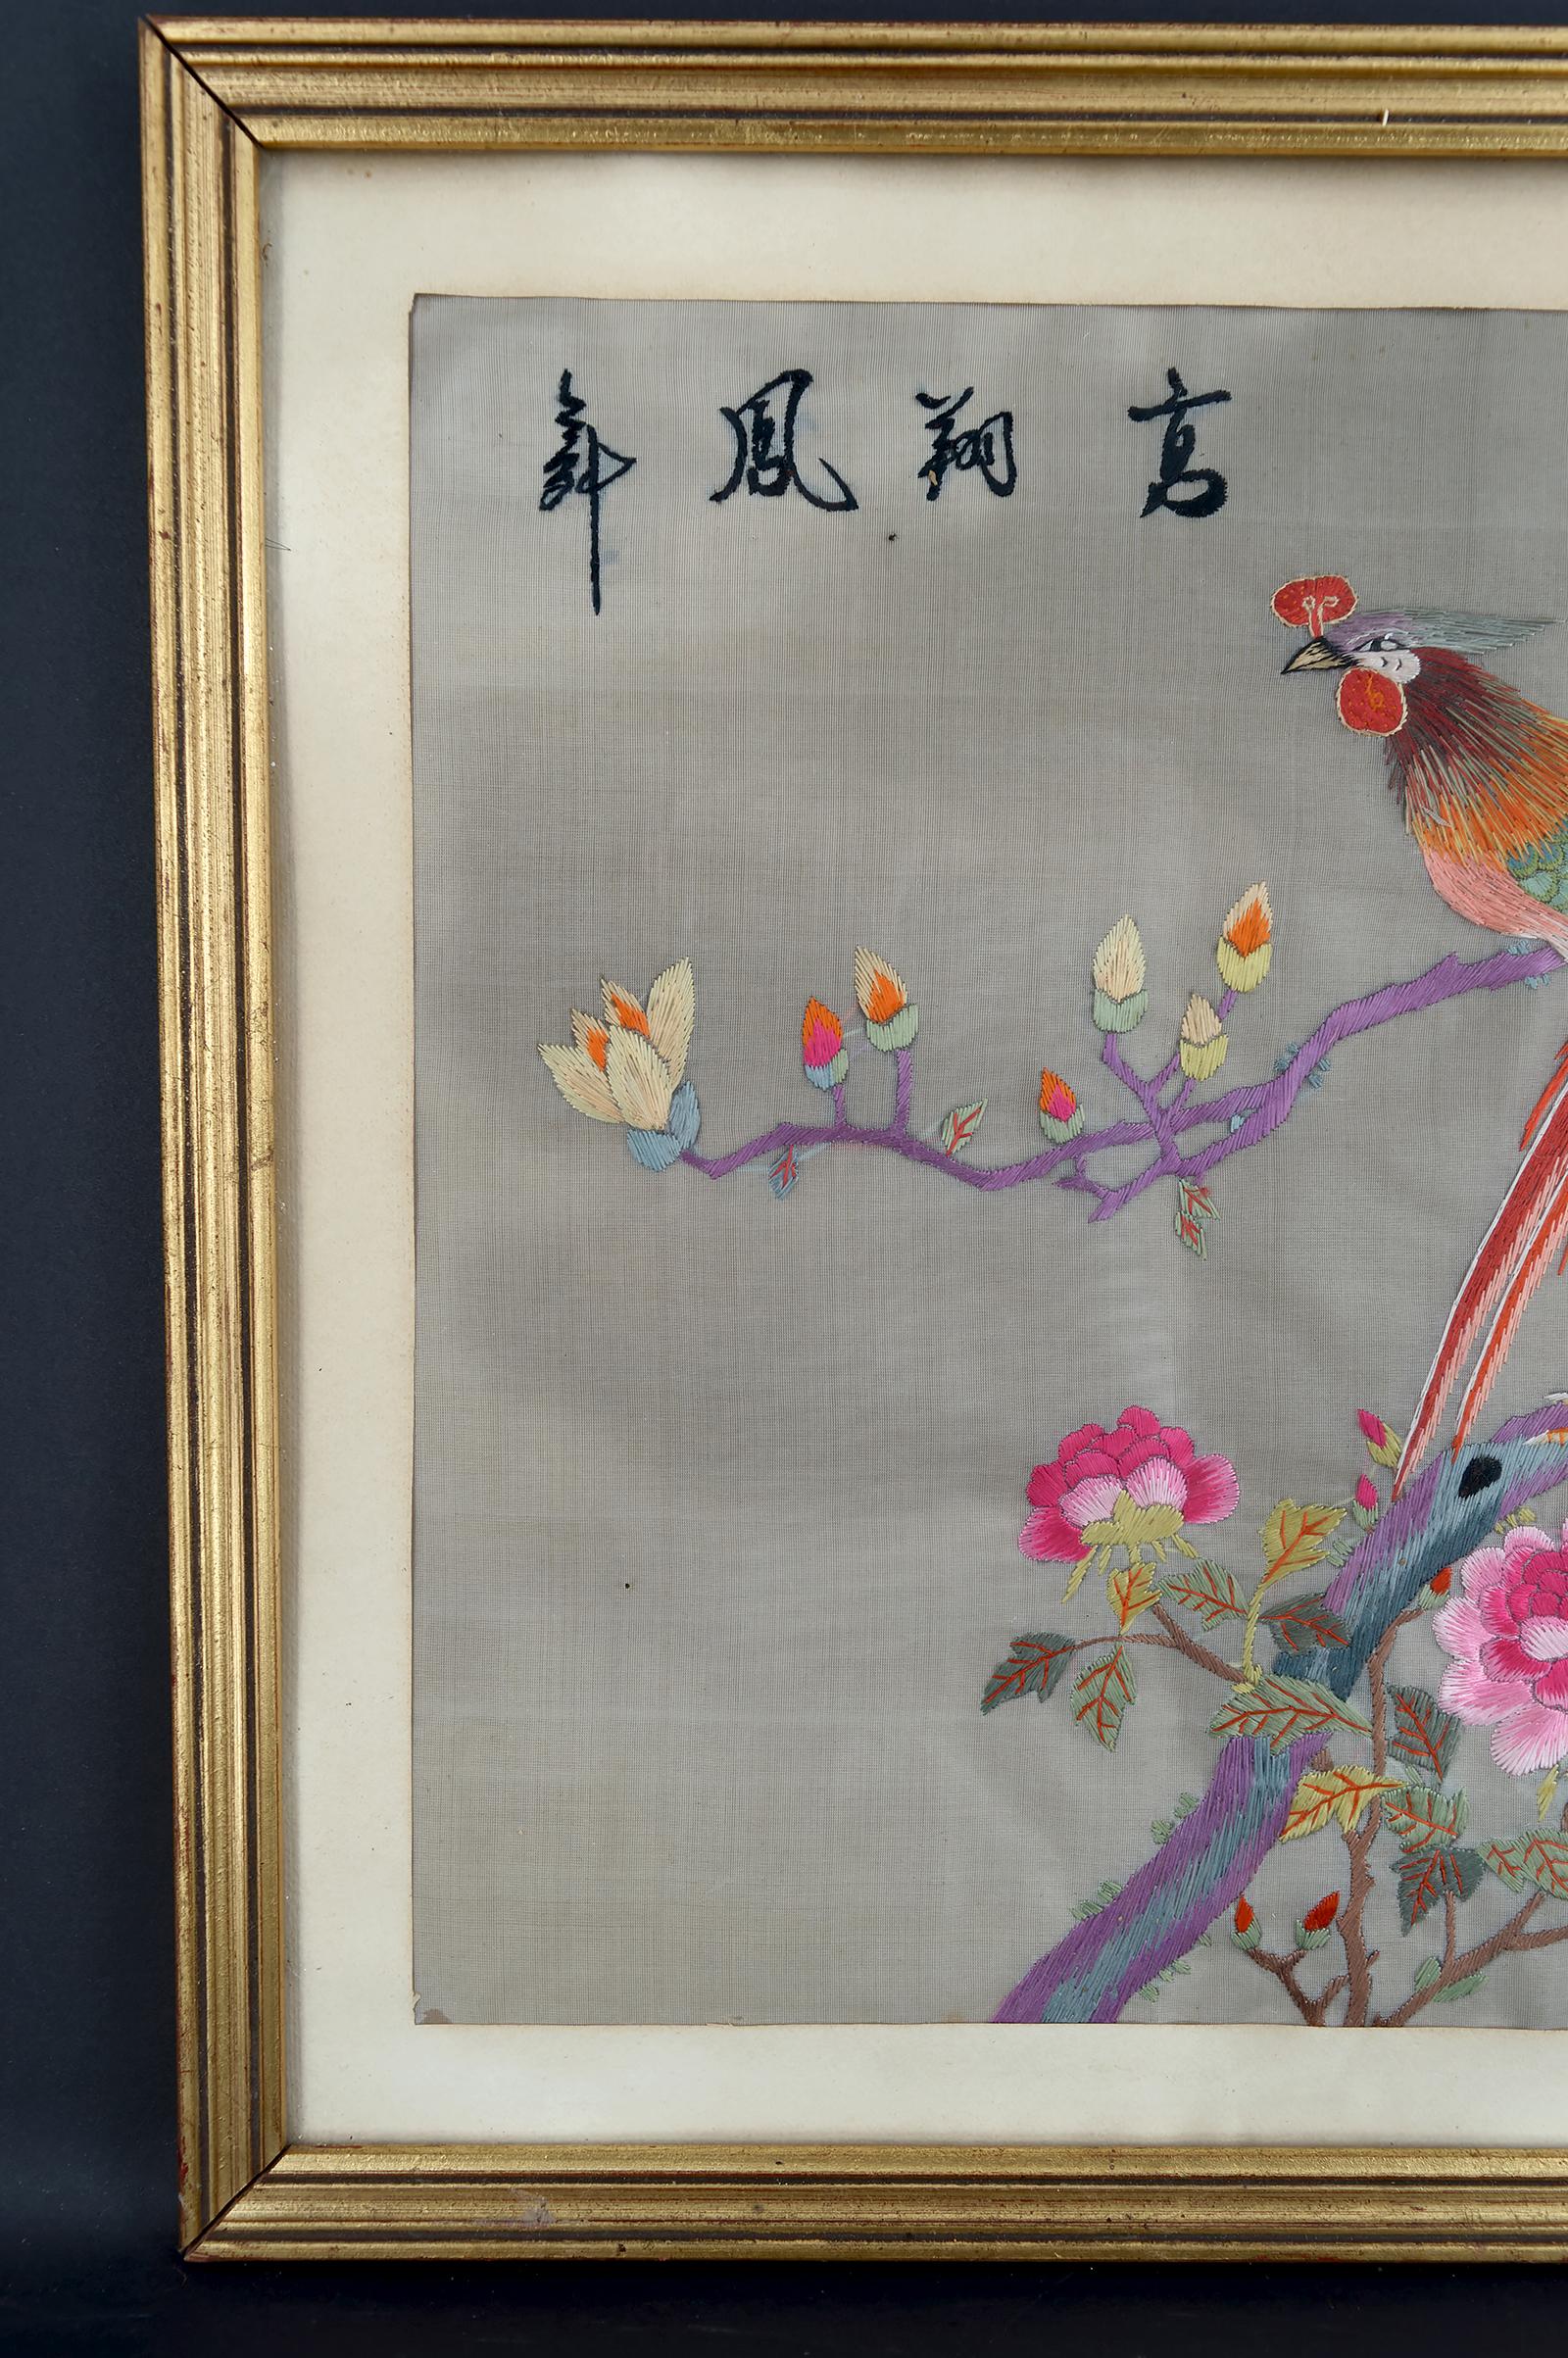 高翔鳳舞